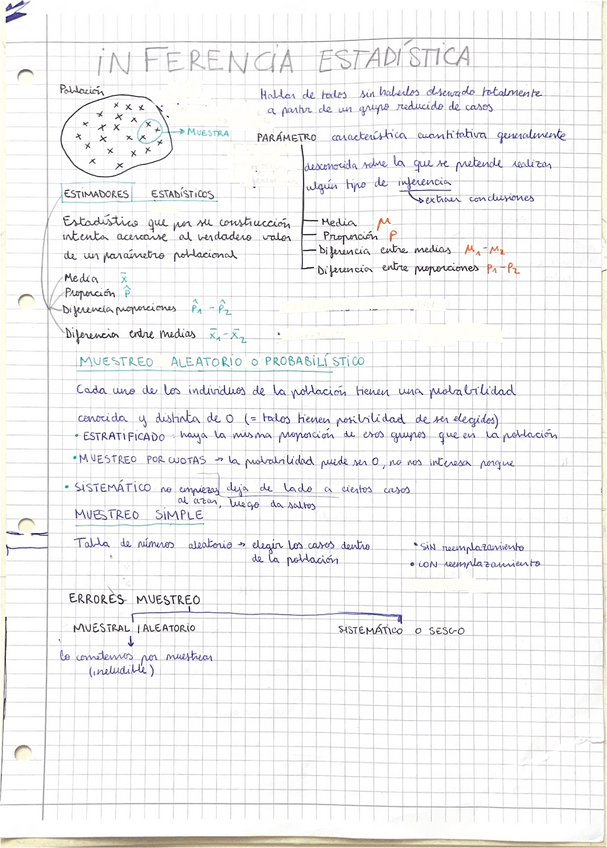 INFERENCIA ESTADÍSTICA
Población
MUESTRA
Hablar de todos sin haberlos observado totalmente
a partir de un grupo reducido de casos
PARÁMETRO característica cuantitativa generalmente
desconocida sobre la que se pretende realizar
algún tipo de inferencia
extraer conclusiones
Media μ
Proporción P
Diferencia entre medias μ₁-μ₂
Diferencia entre proporciones P₁-P₂
ESTIMADORES ESTADÍSTICOS
Estadístico que por su construcción
intenta acercarse al verdadero valor
de un parámetro poblacional
Media x̄
Proporción p̂
Diferencia proporciones p̂₁ - p̂₂
Diferencia entre medias x̄₁-x̄₂
MUESTREO ALEATORIO O PROBABILÍSTICO
Cada uno de los individuos de la población tienen una probabilidad
conocida y distinta de 0 (= todos tienen posibilidad de ser elegidos)
• ESTRATIFICADO haya la misma proporción de esos grupos que en la población
• MUESTREO POR CUOTAS → la probabilidad puede ser 0, no nos interesa porque
deja de lado a ciertos casos
• SISTEMÁTICO no empiezas
al azar, luego da saltos
MUESTREO SIMPLE
Tabla de números aleatorio → elegir los casos dentro
de la población
• SIN reemplazamiento
• CON reemplazamiento
ERRORES MUESTREO
MUESTRAL / ALEATORIO
SISTEMÁTICO O SESGO
Lo cometemos por muestrear
(ineludible)